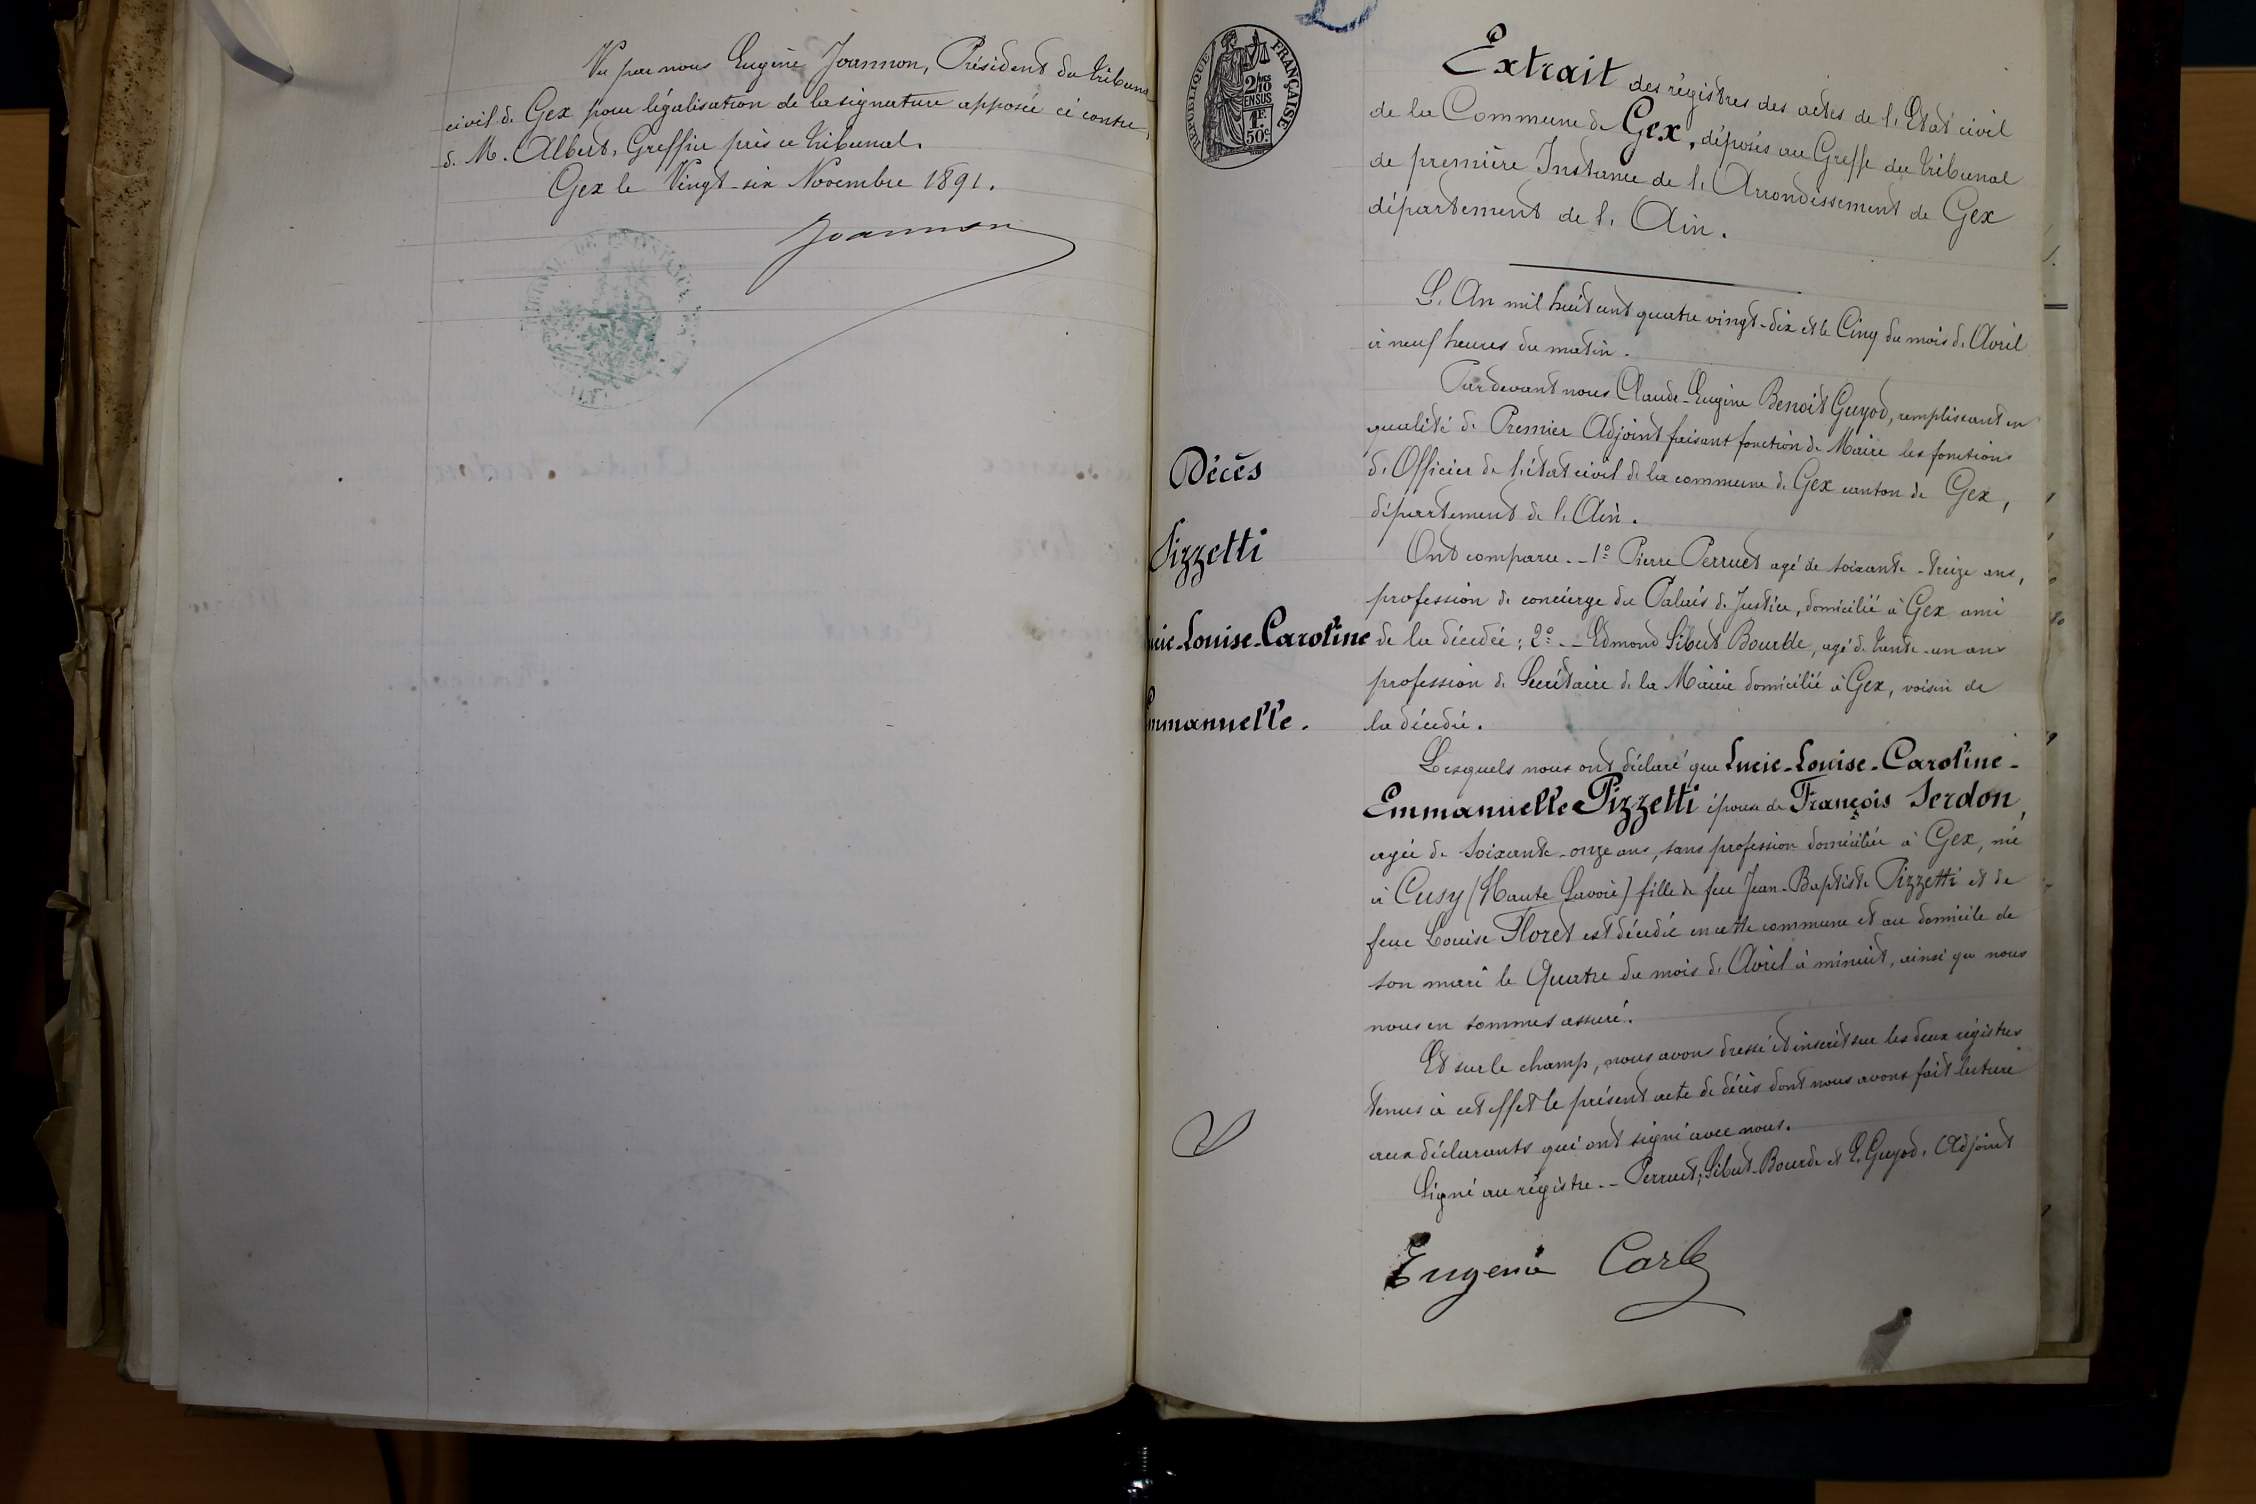 Vu par nous Eugène Joannon, Président du tribunal
civil de Gex pour légalisation de la signature apposée ci contre,
de M. Albert, Greffier près ce tribunal.
Gex le Vingt-six Novembre 1891.
Joannon
RÉPUBLIQUE FRANÇAISE
2/10 EN SUS
1F. 50c.
Extrait des régistres des actes de l'Etat civil
de la Commune de Gex, déposés au Greffe du tribunal
de première Instance de l'Arrondissement de Gex
département de l'Ain.
L'An mil huit cent quatre vingt-dix et le Cinq du mois d'Avril
à neuf heures du matin.
Par devant nous Claude-Eugène Benoit Guyod, remplissant en
qualité de Premier Adjoint faisant fonction de Maire les fonctions
d'Officier de l'état civil de la commune de Gex canton de Gex,
département de l'Ain.
Ont comparu.- 1º Pierre Perruet agé de soixante-treize ans,
profession de concierge du Palais de Justice, domicilié à Gex ami
de la décédée; 2º.- Edmond Sibut Bourde, agé de trente-un ans
profession de Secrétaire de la Mairie domicilié à Gex, voisin de
la décédée.
Lesquels nous ont déclaré que Lucie-Louise-Caroline-
Emmanuelle Pizzetti épouse de François Serdon,
agée de soixante-onze ans, sans profession domiciliée à Gex, née
à Cusy (Haute Savoie) fille de feu Jean-Baptiste Pizzetti et de
feue Louise Floret est décédée en cette commune et au domicile de
son mari le Quatre du mois d'Avril à minuit, ainsi que nous
nous en sommes assuré.
Et sur le champ, nous avons dressé et inscrit sur les deux régistres
tenus à cet effet le présent acte de décès dont nous avons fait lecture
aux déclarants qui ont signé avec nous.
Signé au régistre.- Perruet, Sibut-Bourde et E. Guyod, Adjoint
Eugenie Carle
Décès
Pizzetti
Lucie-Louise-Caroline
Emmanuelle.